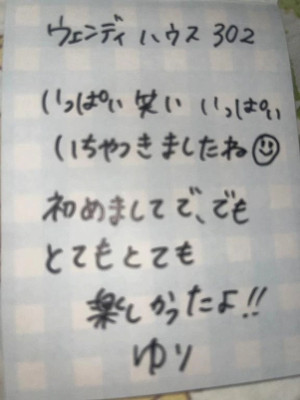 ウェンディハウス 302
いっぱい笑い いっぱい
いちゃつきましたね
初めましてで、でも
とてもとても
楽しかったよ!!
ゆり